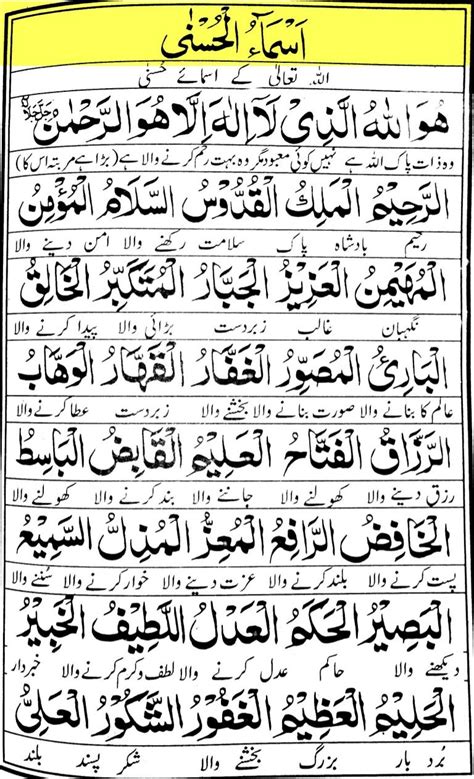 اَسْمَاءُ الْحُسْنٰى
اللہ تعالیٰ کے اسمائے حُسنٰی
هُوَ اللهُ الَّذِیْ لَآ اِلٰهَ اِلَّا هُوَ الرَّحْمٰنُ
وہ ذات پاک اللہ ہے نہیں کوئی معبود مگر وہ بہت رحم کرنے والا ہے (بڑا ہے مرتبہ اس کا)
الرَّحِيْمُ الْمَلِكُ الْقُدُّوْسُ السَّلَامُ الْمُؤْمِنُ
رحیم بادشاہ پاک سلامت رکھنے والا امن دینے والا
الْمُهَيْمِنُ الْعَزِيْزُ الْجَبَّارُ الْمُتَكَبِّرُ الْخَالِقُ
نگہبان غالب زبردست بڑائی والا پیدا کرنے والا
الْبَارِئُ الْمُصَوِّرُ الْغَفَّارُ الْقَهَّارُ الْوَهَّابُ
عالم کا بنانے والا صورت بنانے والا بخشنے والا زبردست عطا کرنے والا
الرَّزَّاقُ الْفَتَّاحُ الْعَلِيْمُ الْقَابِضُ الْبَاسِطُ
رزق دینے والا کھولنے والا جاننے والا بند کرنے والا کھولنے والا
الْخَافِضُ الرَّافِعُ الْمُعِزُّ الْمُذِلُّ السَّمِيْعُ
پست کرنے والا بلند کرنے والا عزت دینے والا خوار کرنے والا سُننے والا
الْبَصِيْرُ الْحَكَمُ الْعَدْلُ اللَّطِيْفُ الْخَبِيْرُ
دیکھنے والا حاکم عدل کرنے والا لطف و کرم کرنے والا خبردار
الْحَلِيْمُ الْعَظِيْمُ الْغَفُوْرُ الشَّكُوْرُ الْعَلِیُّ
بُرد بار بزرگ بخشنے والا شکر پسند بلند